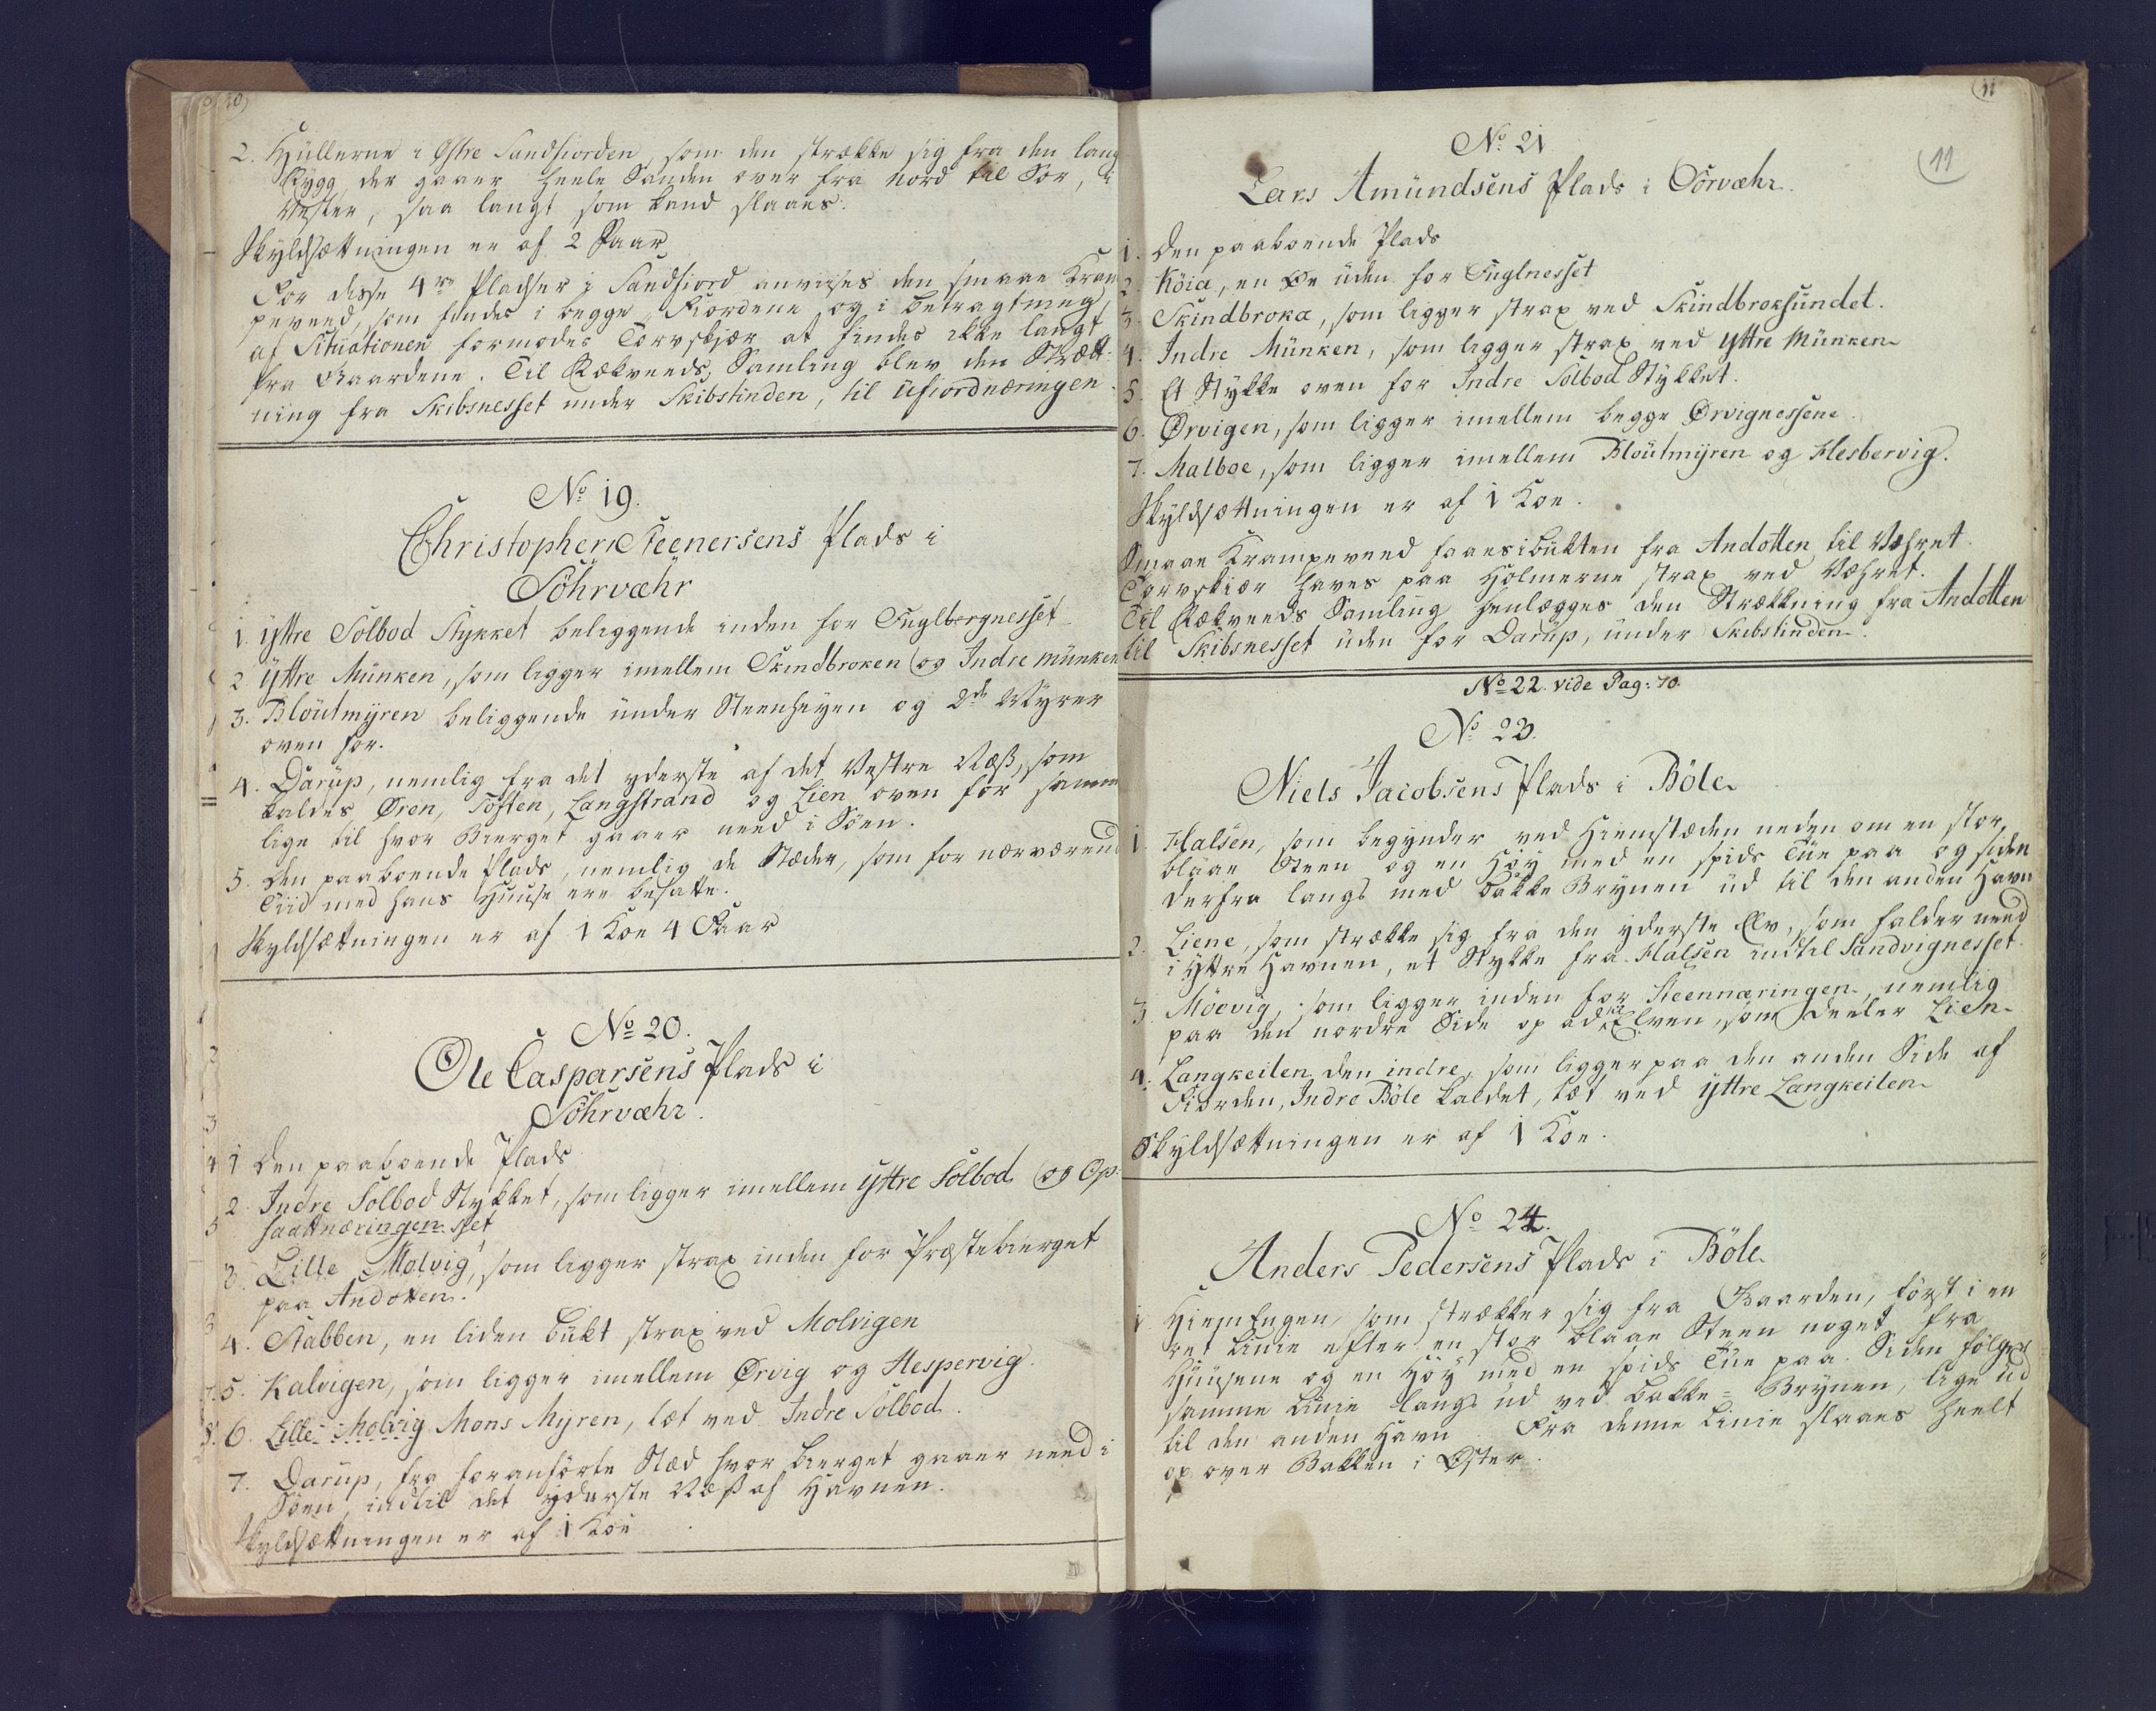 10)
2. Hüllerne i Østre Sandfiorden, som den strække sig fra den lang
Rygg, der gaaer heele Sanden over fra Nord til Sør, i
Vester, saa langt som kand slaaes.
Skyldsætningen er af 2 Faar
For disse 4re Pladser i Sandfiord anvises den smaae Kram
peveed, som findes i begge Fiordene og i betragtning,
af Situationen formodes Torvskjær at findes ikke langt
fra Gaardene. Til Rækveeds Samling blev den Stræk-
ning fra Skibsnesset under Skibstinden, til Ufiordnæringen.
No 19.
Christopher Steenersens Plads i
Söhrvæhr
1. Yttre Solbod Stykket beliggende inden for Fuglbergnesset
2 Yttre Münken, som ligger imellem Skindbroken og Indre Münken
3. Bloutmyren beliggende under Steenhøyen og 2de Myrer
oven for.
4. Darüp, nemlig fra det yderste af det Vestre Næss, som
kaldes Øren, Toften, Langstrand og Lien oven for samme
lige til hvor Bierget gaaer need i Söen.
5. Den paaboende Plads, nemlig de Stæder, som for nærværend
Tiid med hans Huuse ere besatte.
Skyldsætningen er af 1 Koe 4 Faar
No 20.
Ole Caspersens Plads i
Söhrvæhr.
1 Den paaboende Plads
2 Indre Solbod Stykket, som ligger imellem Yttre Solbod og Op-
saattnæringen. Net
3. Lille Molvig, som ligger strax inden for Præstebierget
paa Andotten.
4. Stabben, en liden Bükt strax ved Molvigen
5. Kalvigen, som ligger imellem Ørvig og Hespervig.
6. Lille-Molvig Mons Myren, tæt ved Indre Solbod.
7. Darüp, fra foranførte Stæd hvor Bierget gaaer need i
Söen, indtil det yderste Næss af Havnen.
Skyldsætningen er af 1 Koe
11
11
No 21
Lars Amündsens Plads i Sörvæhr.
1. Den paaboende Plads
2. Köia, en Øe uden for Fuglnesset
3. Skindbroka, som ligger strax ved Skindbroksundet.
4. Indre Münken, som ligger strax ved Yttre Münken
5. Et Stykke oven for Indre Solbod Stykket.
6. Ørvigen, som ligger imellem begge Ørvignessene
7. Malboe, som ligger imellem Bloutmyren og Hesbervig.
Skyldsætningen er af 1 Koe.
Smaae Krampeveed faaes i Bükten fra Andotten til Væhret.
Torvskiær haves paa Holmerne strax ved Væhret.
Til Rækveeds Samling henlægges den Strækning fra Andotten
til Skibsnesset uden for Darüp, under Skibstinden.
No 22. vide Pag: 70.
No 23.
Niels Jacobsens Plads i Böle
1. Halsen, som begynder ved Hiemstæden neden om en stor,
blaae Steen og en Höy med en spids Tüe paa og siden
derfra langs med Bakke Brynen üd til den anden Havn
2. Liene, som strække sig fra den yderste Elv, som falder need
i Yttre Havnen, et Stykke fra Halsen indtil Sandvignesset.
3. Möevig, som ligger inden for Steennæringen, nemlig
paa den nordre Side op ad Elven, som deeler Lien
4. Langkeilen den indre, som ligger paa den anden Side af
Fiorden, Indre Böle kaldet, tæt ved Yttre Langkeilen
Skyldsætningen er af 1 Koe.
No 24.
Anders Pedersens Plads i Böle
1. Hiem Engen, som strækker sig fra Gaarden, först i en
ret Linie efter en stor blaae Steen noget fra
Huusene og en Höy med en spids Tüe paa. Siden fölger
samme Linie langs üd ved Bakke=Brynen, lige üd
til den anden Havn. Fra denne Linie slaaes heelt
op over Bakken i Øster.